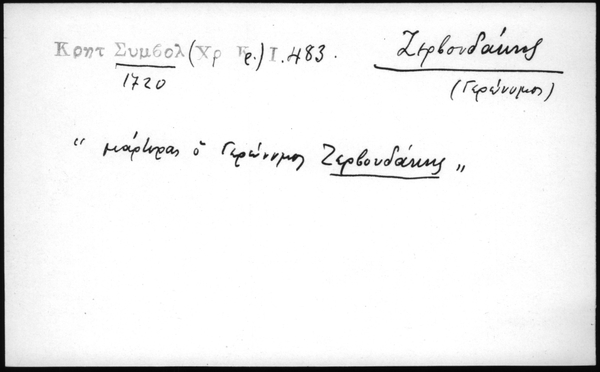 Κρητ Συμβολ (Χρ Κρ.) Ι. 483. Ζερβουδάκης
1720 (Γερώνυμος)
"μάρτυρας ὁ Γερώνυμος Ζερβουδάκης"